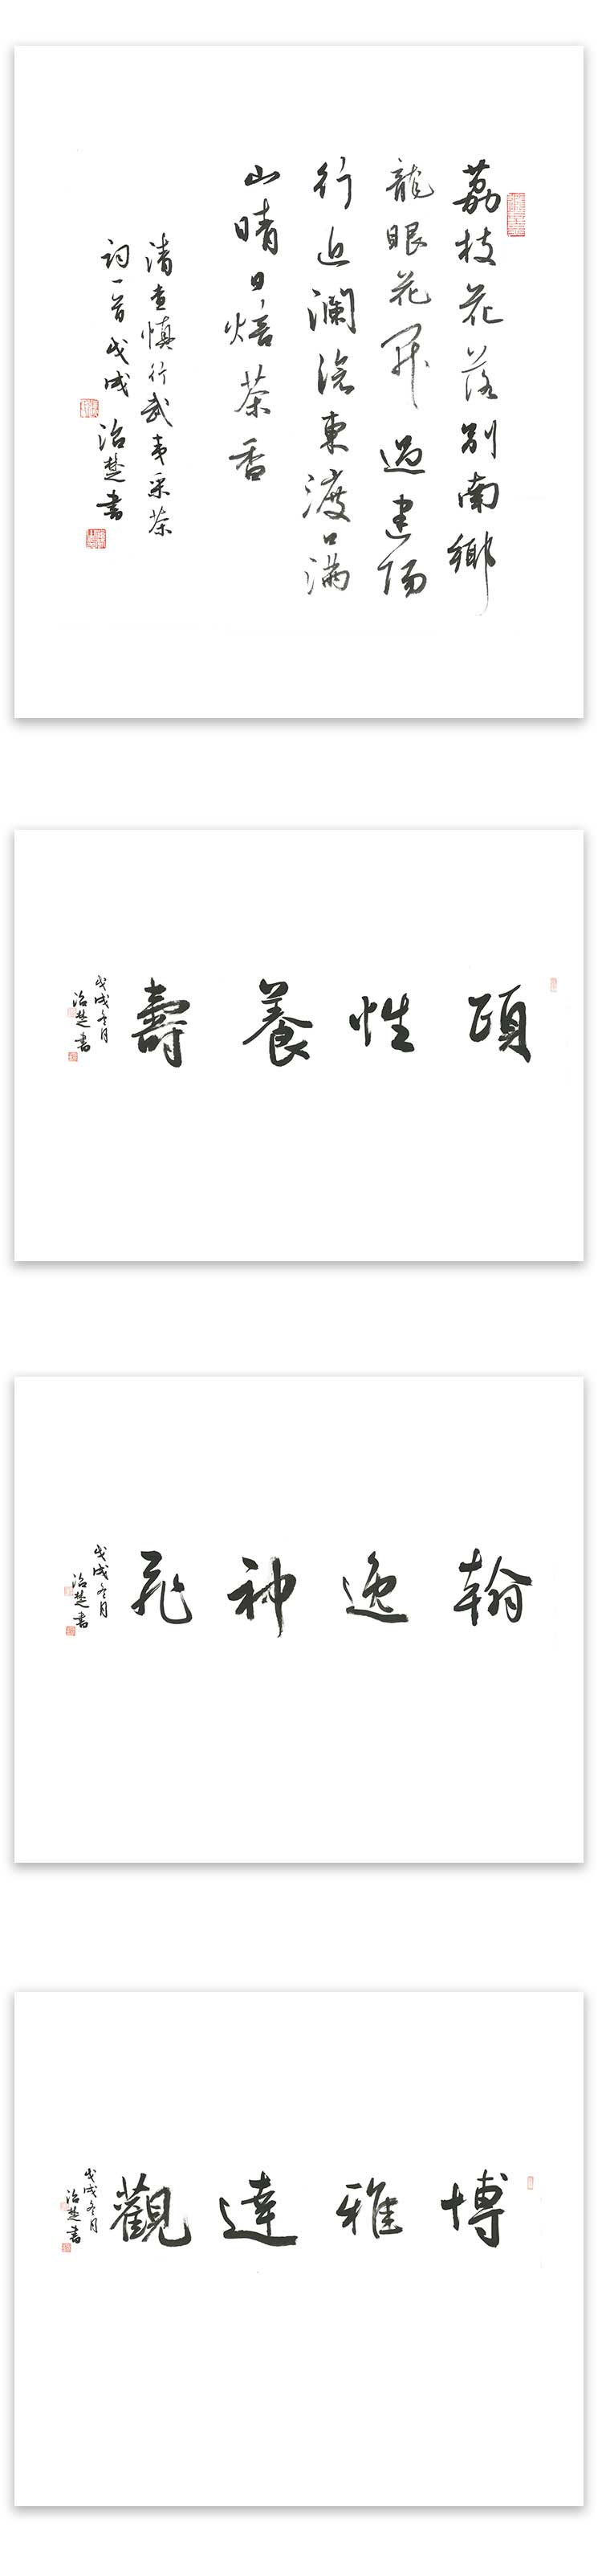 荔枝花落别南鄉
龍眼花开過建陽
行近瀾滄東渡口滿
山晴日焙茶香
清查慎行武夷采茶
詞一首戊戌治楚書
頤性養壽
戊戌冬月
治楚書
翰逸神飛
戊戌冬月
治楚書
博雅達觀
戊戌冬月
治楚書